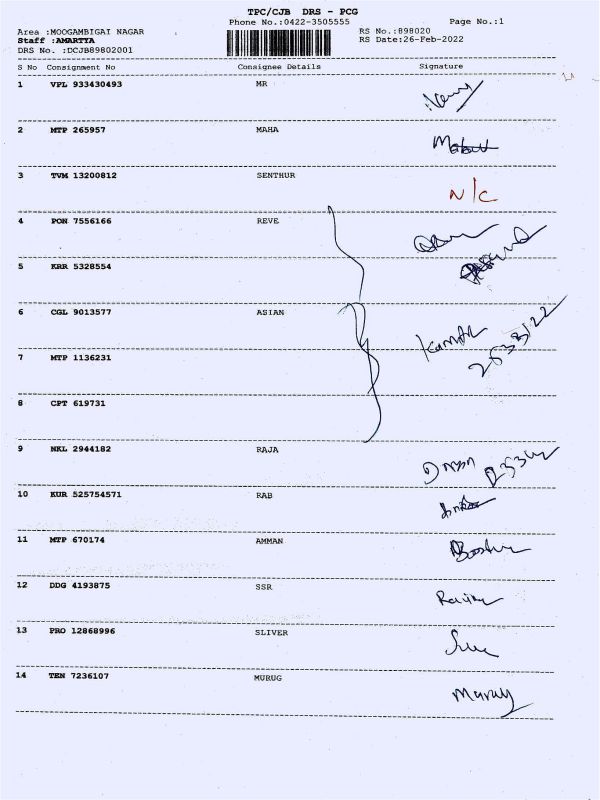 TPC/CJB DRS - PCG
Phone No.:0422-3505555 Page No.:1
Area :MOOGAMBIGAI NAGAR RS No.:898020
Staff :AMARTYA RS Date:26-Feb-2022
DRS No. :DCJB89802001
S No Consignment No Consignee Details Signature
1 VPL 933430493 MR
2 MTP 265957 MAHA
3 TVM 13200812 SENTHUR N/C
4 PON 7556166 REVE
5 KRR 5328554
6 CGL 9013577 ASIAN Kumar
7 MTP 1136231
8 CPT 619731
9 NKL 2944182 RAJA
10 KUR 525754571 RAB
11 MTP 670174 AMMAN
12 DDG 4193875 SSR
13 PRO 12868996 SLIVER
14 TEN 7236107 MURUG